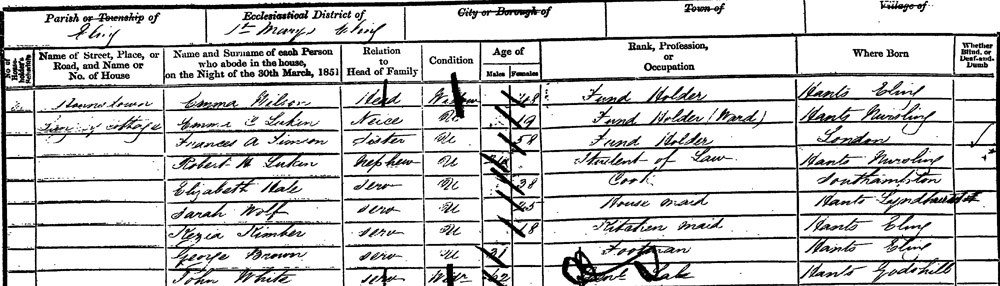 Parish or Township of Ecclesiastical District of City or Borough of Town of Village of
Eling St Marys Eling
No. of House-holder's Schedule Name of Street, Place, or Road, and Name or No. of House Name and Surname of each Person who abode in the house, on the Night of the 30th March, 1851 Relation to Head of Family Condition Age of Males Females Rank, Profession, or Occupation Where Born Whether Blind, or Deaf-and-Dumb
Hounsdown Emma Wilson Head Widow 48 Fund Holder Hants Eling
cottage Emma C Lukin Neice U 19 Fund Holder (Ward) Hants Nursling
Frances A Simson Sister U 58 Fund Holder London
Robert H Lukin Nephew U Student of Law Hants Nursling
Elizabeth Hale serv U 38 Cook Southampton
Sarah Wolf serv U 25 House maid Hants Lyndhurst
Kezia Kimber serv U 18 Kitchen maid Hants Eling
George Brown serv U 21 Footman Hants Eling
John White serv Wr 62 Hants Godshill